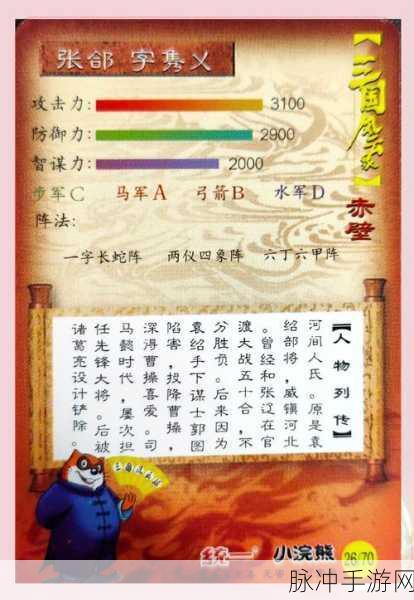 张郃 字隽乂
攻击力: 3100
防御力: 2900
智谋力: 2000
步军C 马军A 弓箭B 水军D
阵法:
一字长蛇阵 两仪四象阵 六丁六甲阵
【三国风云
赤壁
【人物列传】
河间人氏。原是袁
绍部将，威镇河北
。曾经和张辽在官
渡大战五十合，不
分胜负。后来因为
袁绍手下谋士郭图
陷害，投降曹操，
深得曹操喜爱。司
马懿时代，屡次担
任先锋大将。后被
诸葛亮设计铲除。
统一 小浣熊 26/70
脉冲手游网